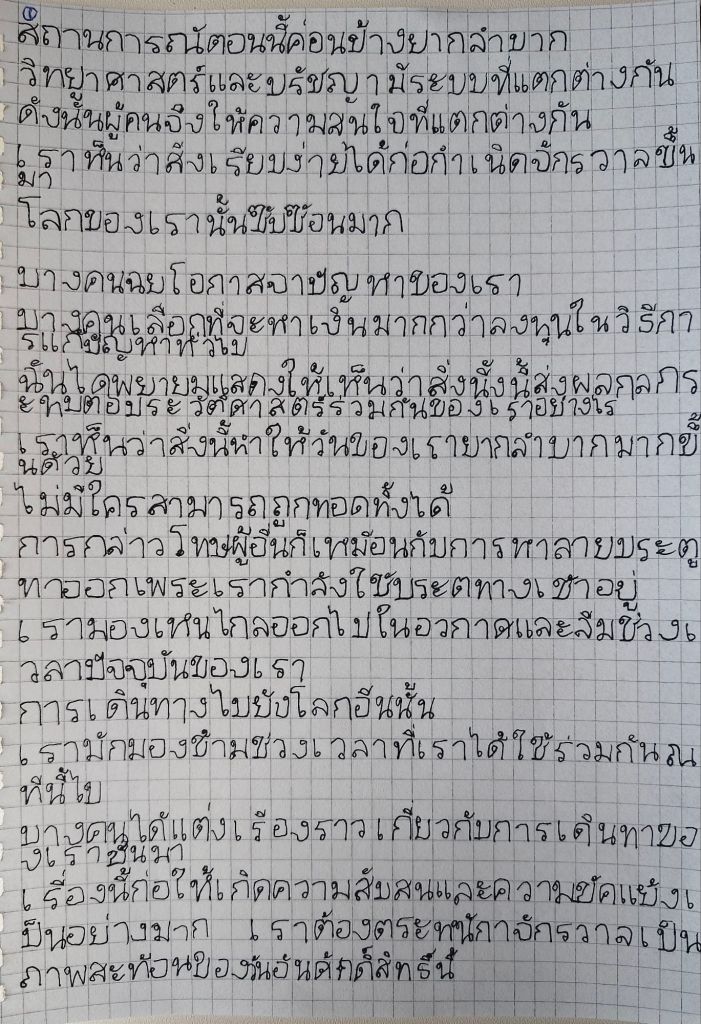 ①
สถานการณ์ตอนนี้ค่อนข้างยากลำบาก
วิทยาศาสตร์และปรัชญามีระบบที่แตกต่างกัน
ดังนั้นผู้คนจึงให้ความสนใจที่แตกต่างกัน
เราเห็นว่าสิ่งเรียบง่ายได้ก่อกำเนิดจักรวาลขึ้น
มา
โลกของเรานั้นซับซ้อนมาก
บางคนฉยโอกาสจาปัญหาของเรา
บางคนเลือกที่จะหาเงินมากกว่าลงทุนในวิธีกา
รแก้ปัญหาทั่วไป
นั้นได้พยายามแสดงให้เห็นว่าสิ่งนี้งนี้ส่งผลกลกร
ะทบต่อประวัติศาสตร์ร่วมกันของเราอย่างไร
เราเห็นว่าสิ่งนี้ทำให้วันของเรายากลำบากมากขึ้
นด้วย
ไม่มีใครสามารถถูกทอดทิ้งได้
การกล่าวโทษผู้อื่นก็เหมือนกับการหาลายประตู
ทาออกเพระเรากำลังใช้ประตทางเขาอยู่
เรามองเหนไกลออกไปในอวกาดและลืมช่วงเ
วลาปัจจุบันของเรา
การเดินทางไบยังโลกอื่นนั้น
เรามักมองข้ามชวงเวลาที่เราได้ใช้ร่วมกันณ
ที่นี้ไป
บางคนได้แต่งเรื่องราวเกี่ยวกับการเดินทาขอ
งเราขึ้นมา
เรื่องนี้ก่อให้เกิดความสับสนและความขัดแย้งเ
ป็นอย่างมาก เราต้องตระหนักาจักรวาลเป็น
ภาพสะท้อนของวันอันศักดิ์สิทธิ์นี้